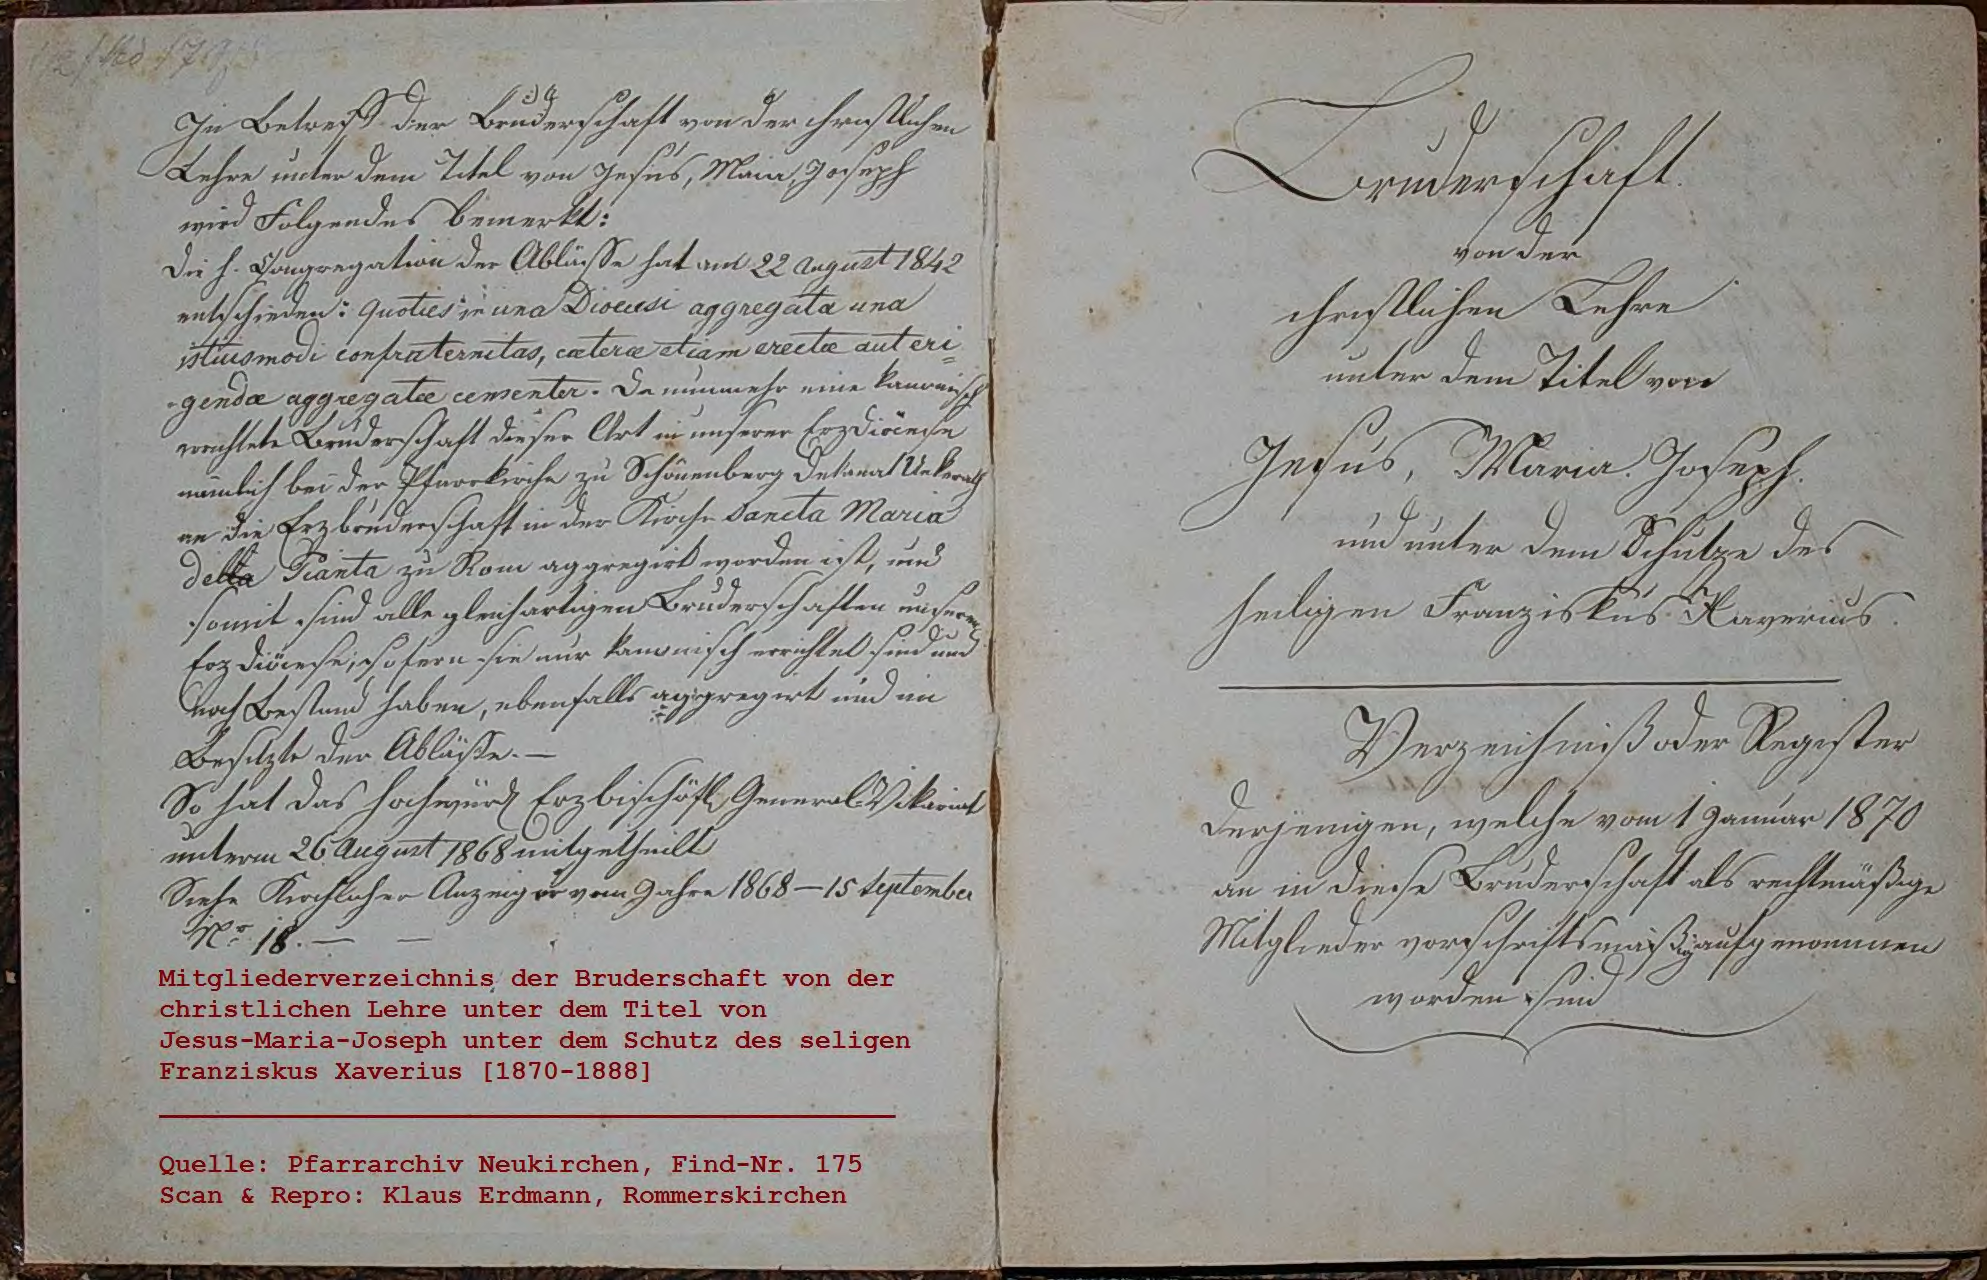 In Betreff der Bruderschaft von der christlichen
Lehre unter dem Titel von Jesus, Maria, Joseph
wird Folgendes bemerkt:
Die h. Congregation der Ablässe hat am 22 August 1842
entschieden: quoties in una Diocesi aggregata una
istiusmodi confraternitas, cæteræ etiam erectæ aut eri-
gendæ aggregatæ censentur. Da nunmehr eine kanonisch
errichtete Bruderschaft dieser Art in unserer Erzdiöcese
nämlich bei der Pfarrkirche zu Schönenberg Dekanat Uekerath
an die Erzbruderschaft in der Kirche Sancta Maria
della Pianta zu Rom aggregirt worden ist, und
somit sind alle gleichartigen Bruderschaften unserer
Erzdiöcese, sofern sie nur kanonisch errichtet sind und
noch Bestand haben, ebenfalls aggregirt und im
Besitzte der Ablässe. —
So hat das hochwürd Erzbischöfl. General-Vikariat
unterm 26 August 1868 mitgetheilt
Siehe Kirchlicher Anzeiger vom Jahre 1868 — 15 September
No 18. — —
Mitgliederverzeichnis der Bruderschaft von der
christlichen Lehre unter dem Titel von
Jesus-Maria-Joseph unter dem Schutz des seligen
Franziskus Xaverius [1870-1888]
Quelle: Pfarrarchiv Neukirchen, Find-Nr. 175
Scan & Repro: Klaus Erdmann, Rommerskirchen
Bruderschaft.
von der
christlichen Lehre
unter dem Titel von
Jesus, Maria. Joseph.
und unter dem Schutze des
heiligen Franziskus Xaverius.
Verzeichniß oder Register
derjenigen, welche vom 1 Januar 1870
an in diese Bruderschaft als rechtmäßige
Mitglieder vorschriftsmäßig aufgenommen
worden sind